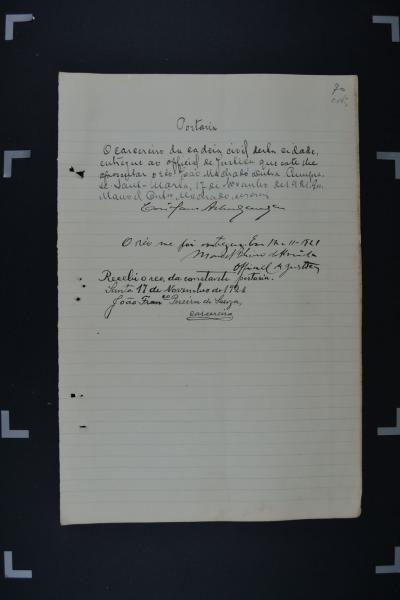 70
Portaria
O carcereiro da cadeia civil desta cidade,
entregue ao official de Justiça que este lhe
apresentar o réo João Machado Dutra. Cumpra-
se. Santa Maria, 17 de Novembro de 192
Manoel Machado, escrivão
O réo me foi entregue. Em 17-11-1921
Manoel
Official de Justiça
Recebi o reo, da constante portaria.
Santa 17 de Novembro de 192
João Franco Pereira de Souza,
carcereiro